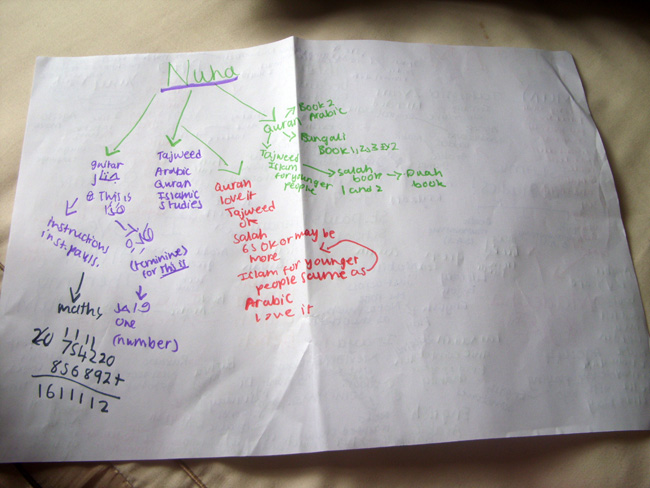 Nuha
guitar
& This is
instructions
in st. pauls.
(feminine)
for this
one
(number)
maths
20
1 1 1 1
754220
856892+
1611112
Tajweed
Arabic
Quran
Islamic
studies
Quran
love it
Tajweed
Salah
Islam for younger
people saume as
Arabic
love it
Quran
Book 2
Arabic
Bangali
Book 1, 2, 3 Ex 2
Tajweed
Islam
for younger
people
Salah
book
1 and 2
Duah
book